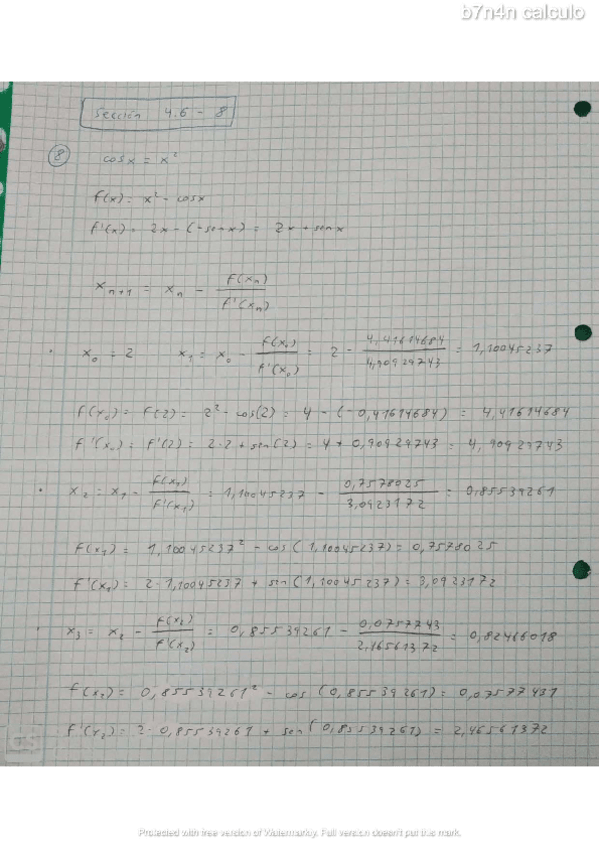 b7n4n calculo
Sección 4.6 - 8
8 cosx = x²
f(x) = x² - cosx
f'(x) = 2x - (-senx) = 2x + senx
xₙ₊₁ = xₙ - f(xₙ) / f'(xₙ)
· x₀ = 2 x₁ = x₀ - f(x₀) / f'(x₀) = 2 - 4,41614684 / 4,90929743 = 1,10045237
f(x₀) = f(2) = 2² - cos(2) = 4 - (-0,41614684) = 4,41614684
f'(x₀) = f'(2) = 2·2 + sen(2) = 4 + 0,90929743 = 4,90929743
· x₂ = x₁ - f(x₁) / f'(x₁) = 1,10045237 - 0,7578025 / 3,0923172 = 0,85539261
f(x₁) = 1,10045237² - cos(1,10045237) = 0,7578025
f'(x₁) = 2·1,10045237 + sin(1,10045237) = 3,0923172
· x₃ = x₂ - f(x₂) / f'(x₂) = 0,85539261 - 0,0757743 / 2,46561372 = 0,82466018
f(x₂) = 0,85539261² - cos(0,85539261) = 0,07577431
f'(x₂) = 2·0,85539261 + sen(0,85539261) = 2,46561372
Protected with free version of Watermarkly. Full version doesn't put this mark.